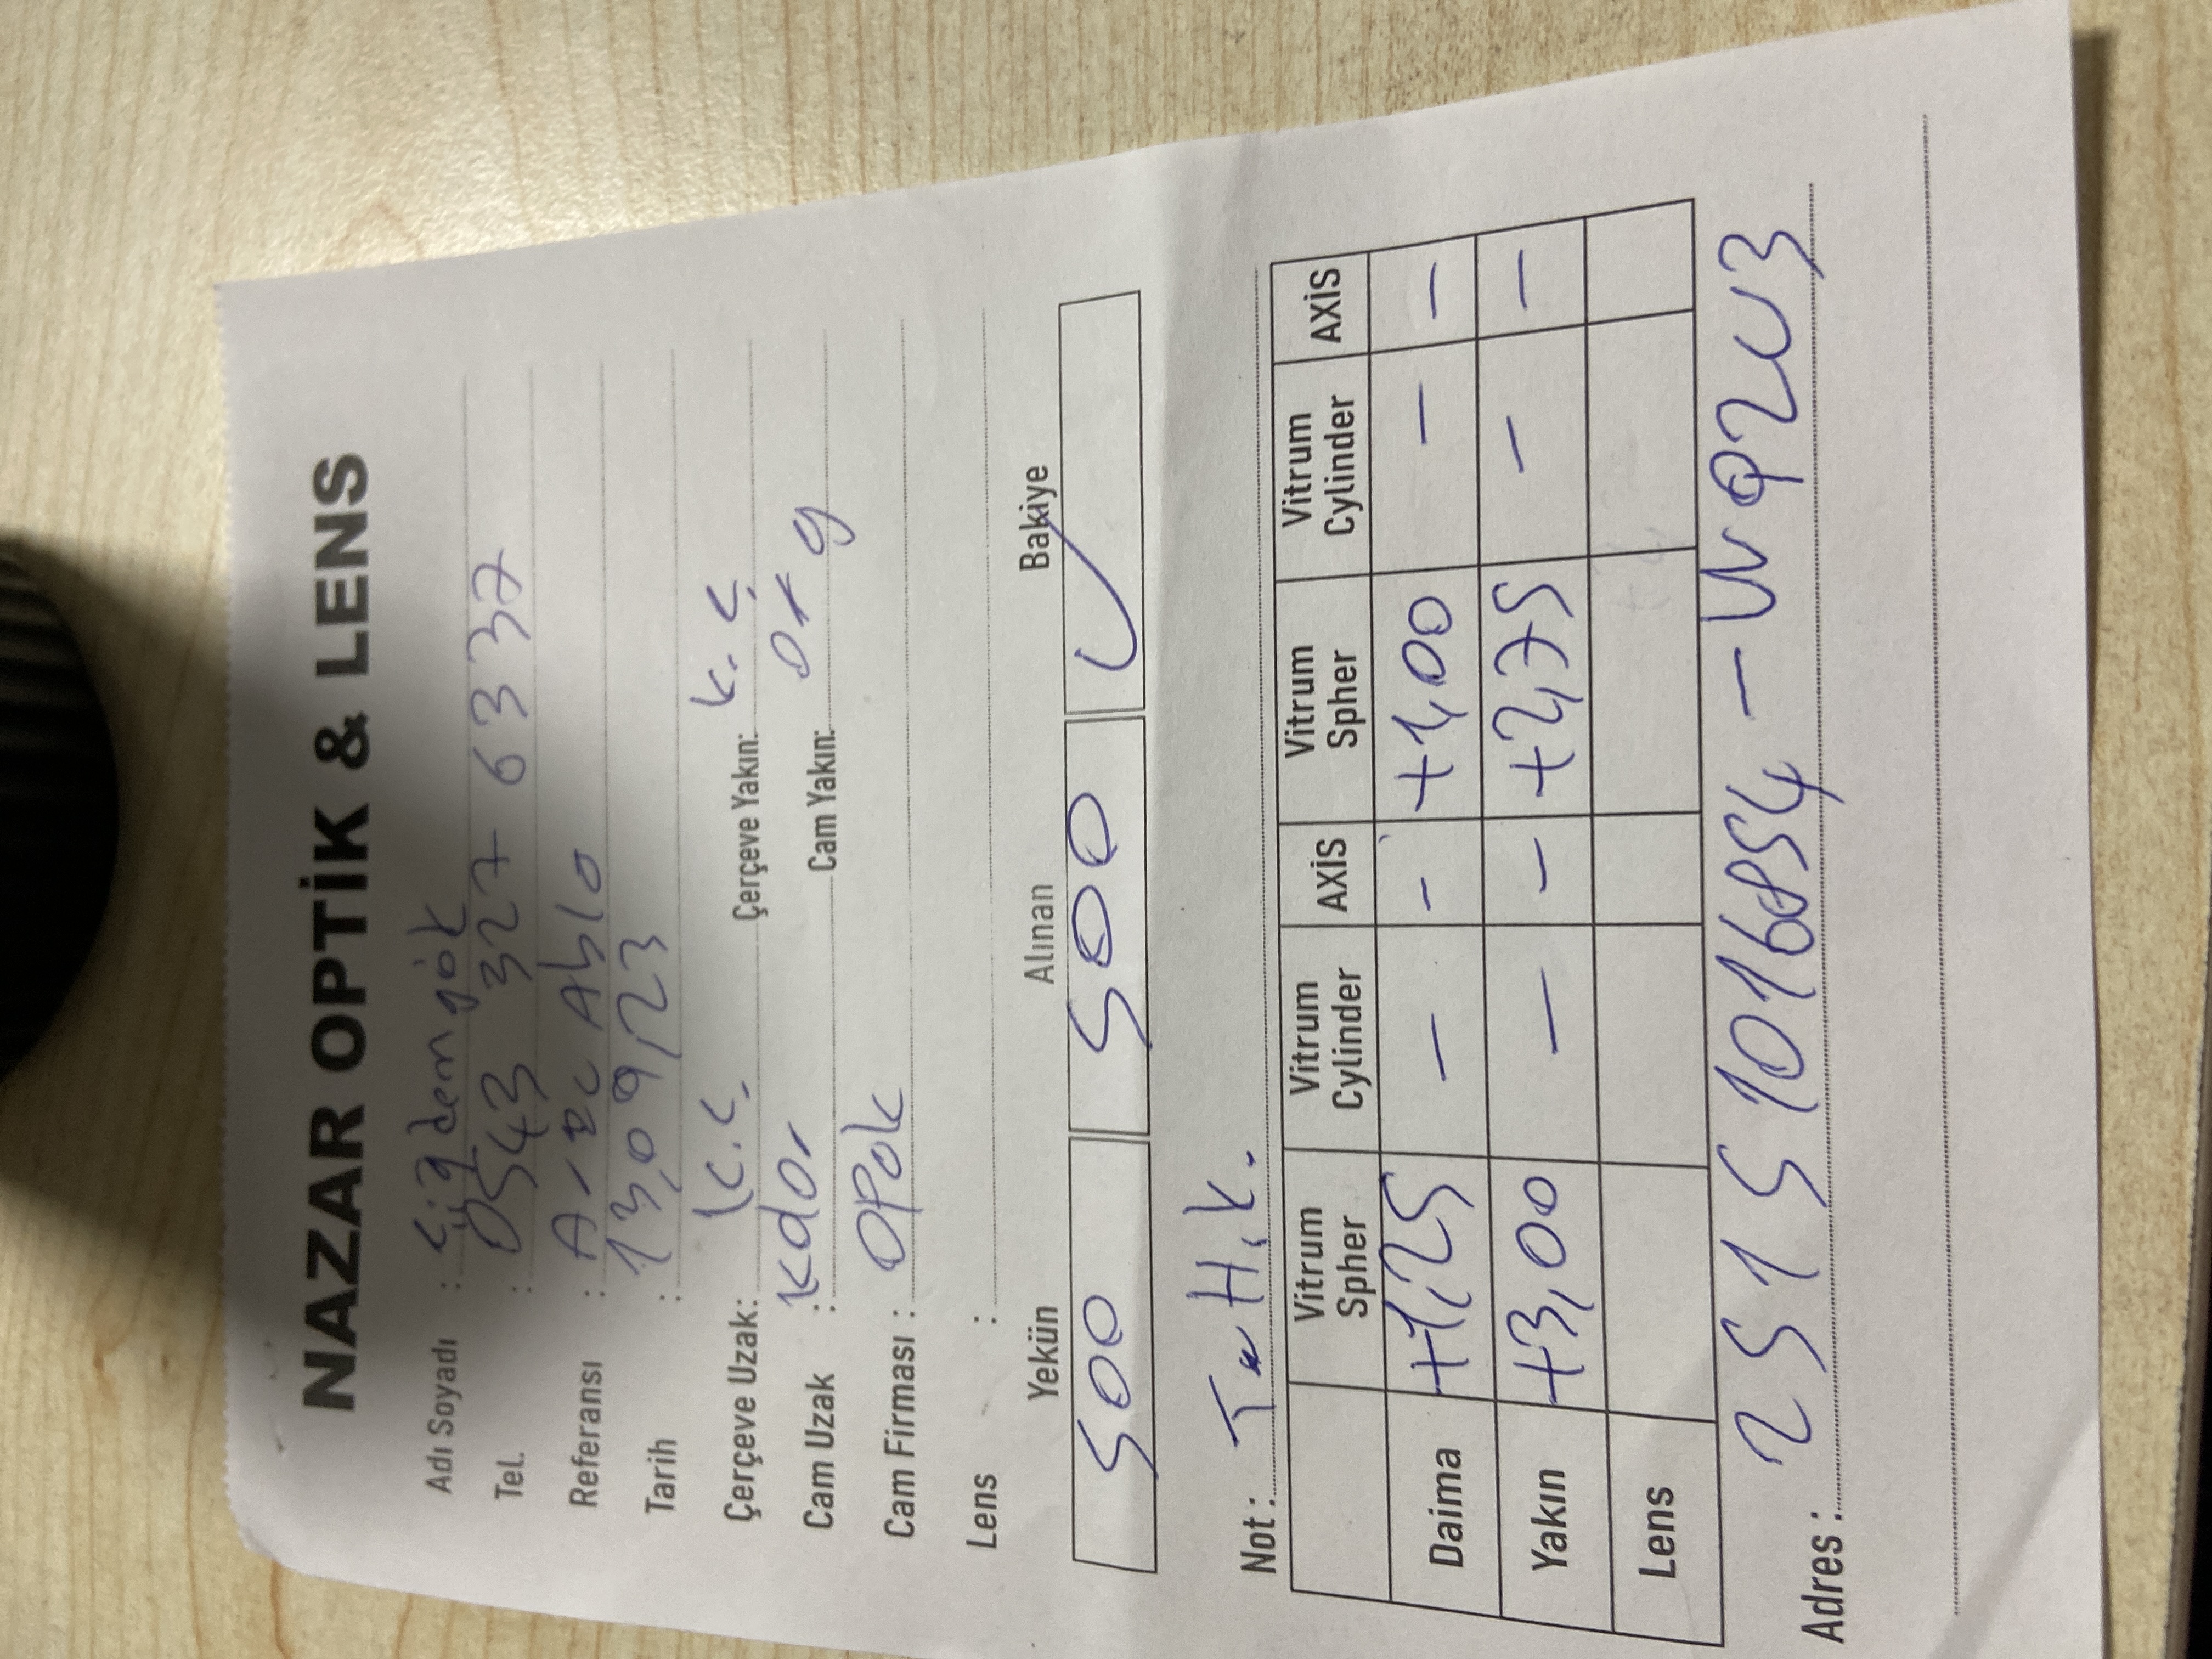 NAZAR OPTİK & LENS
Adı Soyadı : Çiğdem gök
Tel. : 0543 327 6337
Referansı : Ablo
Tarih : 13,09,23
Çerçeve Uzak: K.Ç. Çerçeve Yakın: K.Ç
Cam Uzak : Cam Yakın: org
Cam Firması : opak
Lens :
Yekün Alınan Bakiye
500 500 ✓
Not : T.H.K.
Vitrum Spher Vitrum Cylinder AXİS Vitrum Spher Vitrum Cylinder AXİS
Daima +1,25 – – +1,00 – –
Yakın +3,00 – – +2,75 – –
Lens
Adres : 25151016854 – WQ2U3